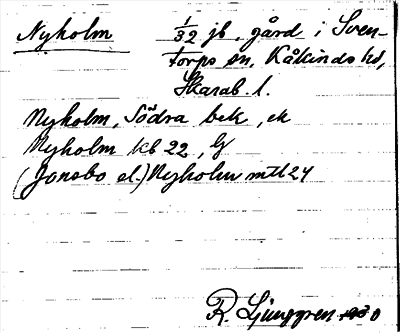 Nyholm 1/32 jb. gård i Sven-
torps sn, Kåkinds hd,
Skarab. l.
Nyholm, Södra bek, ek
Nyholm kb 22, Lj
(Jonsbo el.) Nyholm mtl 24
R. Ljunggren